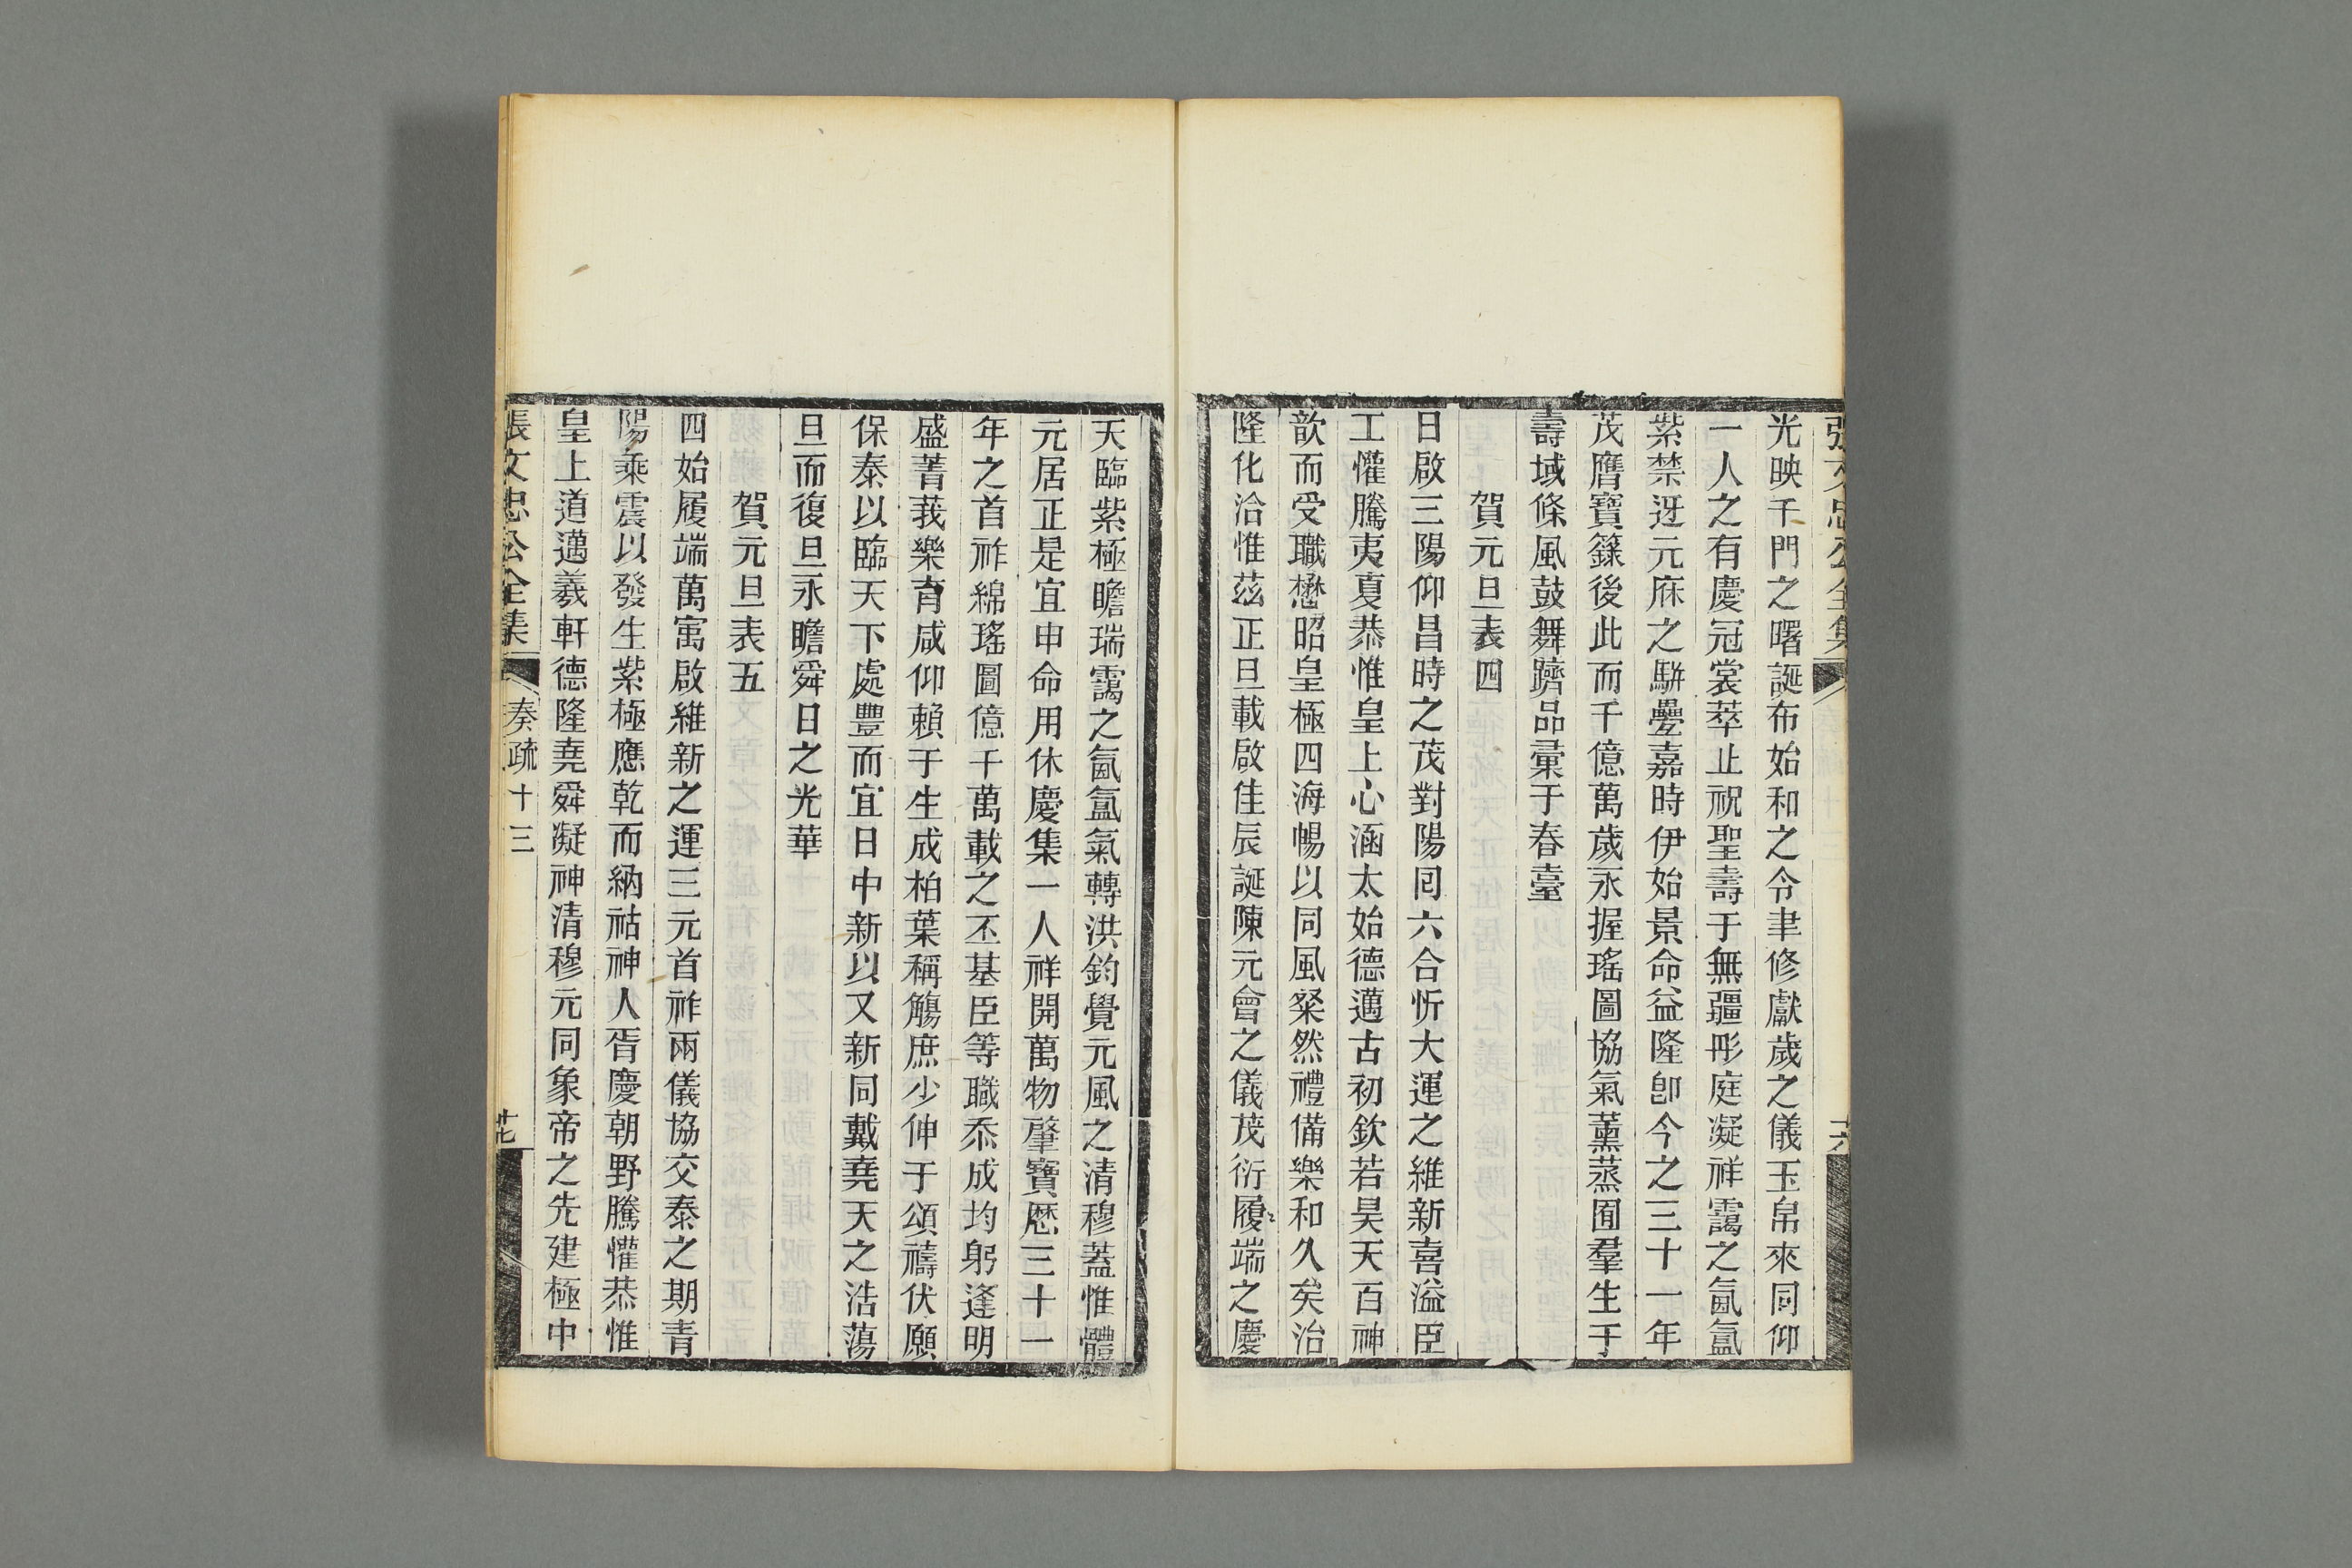 張文忠公全集
十六
光映千門之曙誕布始和之令聿修獻歲之儀玉帛來同仰
一人之有慶冠裳萃止祝聖壽于無疆彤庭凝祥靄之氤氳
紫禁迓元庥之駢疊嘉時伊始景命益隆卽今之三十一年
茂膺寶籙後此而千億萬歲永握瑤圖協氣薰蒸囿羣生于
壽域條風鼓舞躋品彙于春臺
賀元旦表四
日啟三陽仰昌時之茂對陽囘六合忻大運之維新喜溢臣
工懽騰夷夏恭惟皇上心涵太始德邁古初欽若昊天百神
歆而受職懋昭皇極四海暢以同風粲然禮備樂和久矣治
隆化洽惟茲正旦載啟佳辰誕陳元會之儀茂衍履端之慶
天臨紫極瞻瑞靄之氤氳氣轉洪鈞覺元風之清穆蓋惟體
元居正是宜申命用休慶集一人祥開萬物肇寶歷三十一
年之首祚綿瑤圖億千萬載之丕基臣等職忝成均躬逢明
盛菁莪樂育咸仰賴于生成柏葉稱觴庶少伸于頌禱伏願
保泰以臨天下處豐而宜日中新以又新同戴堯天之浩蕩
旦而復旦永瞻舜日之光華
賀元旦表五
四始履端萬寓啟維新之運三元首祚兩儀協交泰之期青
陽乘震以發生紫極應乾而納祜神人胥慶朝野騰懽恭惟
皇上道邁羲軒德隆堯舜凝神清穆元同象帝之先建極中
張文忠公全集
奏疏十三
十七